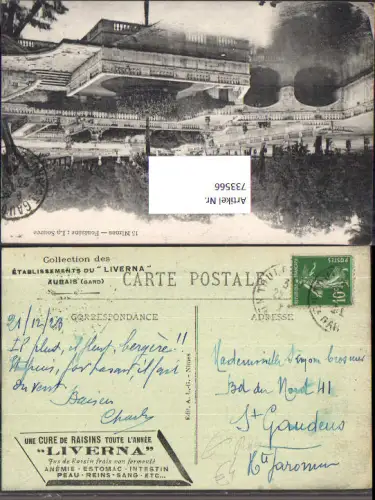 15 Nîmes — Fontaine : La Source
Artikel Nr.
733566
Collection des
ÉTABLISSEMENTS DU "LIVERNA"
AUBAIS (GARD)
CARTE POSTALE
CORRESPONDANCE
ADRESSE
21/12/23
Il pleut, il pleut, bergère !!
et puis, par
du vent
Baisers
Charles
Edit. A. L.-G. - Nîmes
Mademoiselle
Bd du Nord 41
St Gaudens
Hte Garonne
POSTES
10c
UNE CURE DE RAISINS TOUTE L'ANNÉE
"LIVERNA"
Jus de Raisin frais non fermenté
ANÉMIE - ESTOMAC - INTESTIN
PEAU - REINS - SANG - ETC...